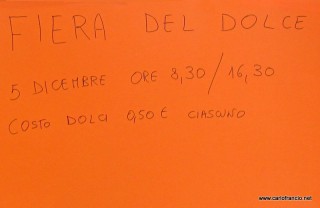 FIERA DEL DOLCE
5 DICEMBRE ORE 8,30/16,30
COSTO DOLCI 0,50 € CIASCUNO
www.carlofrancio.net